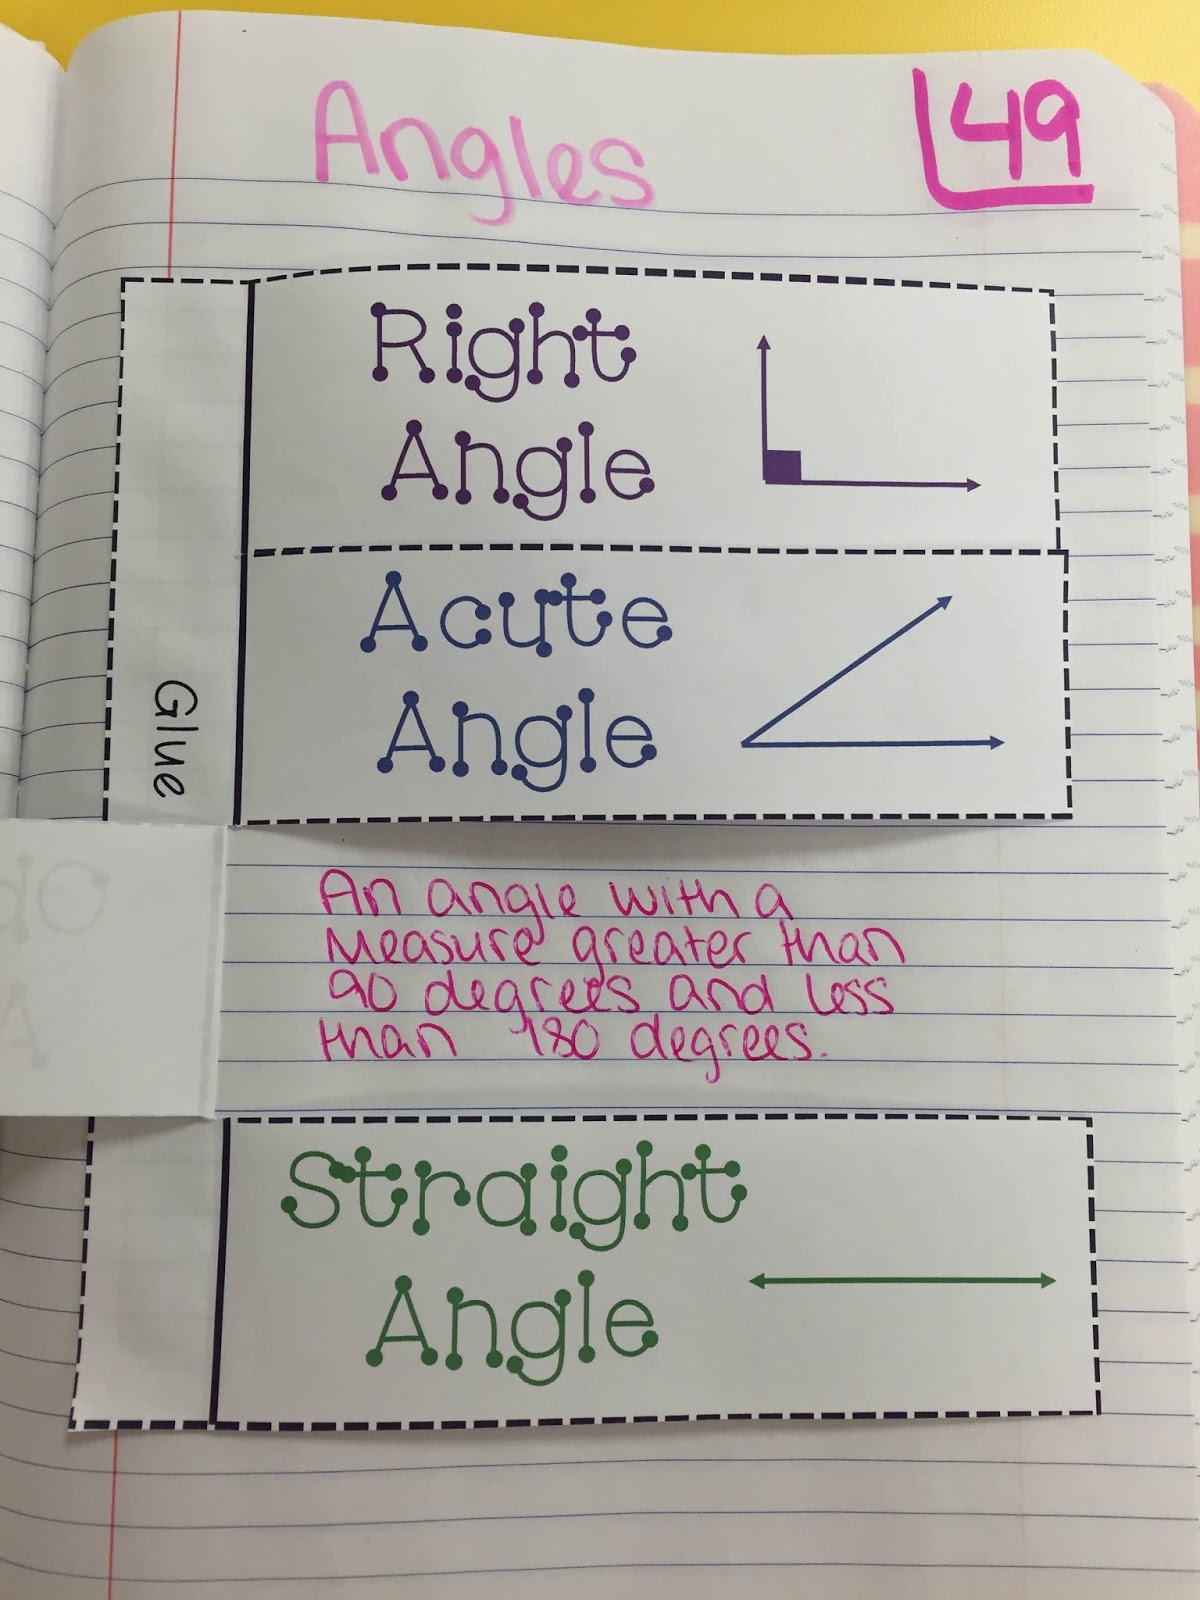 Angles
49
Right
Angle
Acute
Angle
Glue
An angle with a
measure greater than
90 degrees and less
than 180 degrees.
Straight
Angle